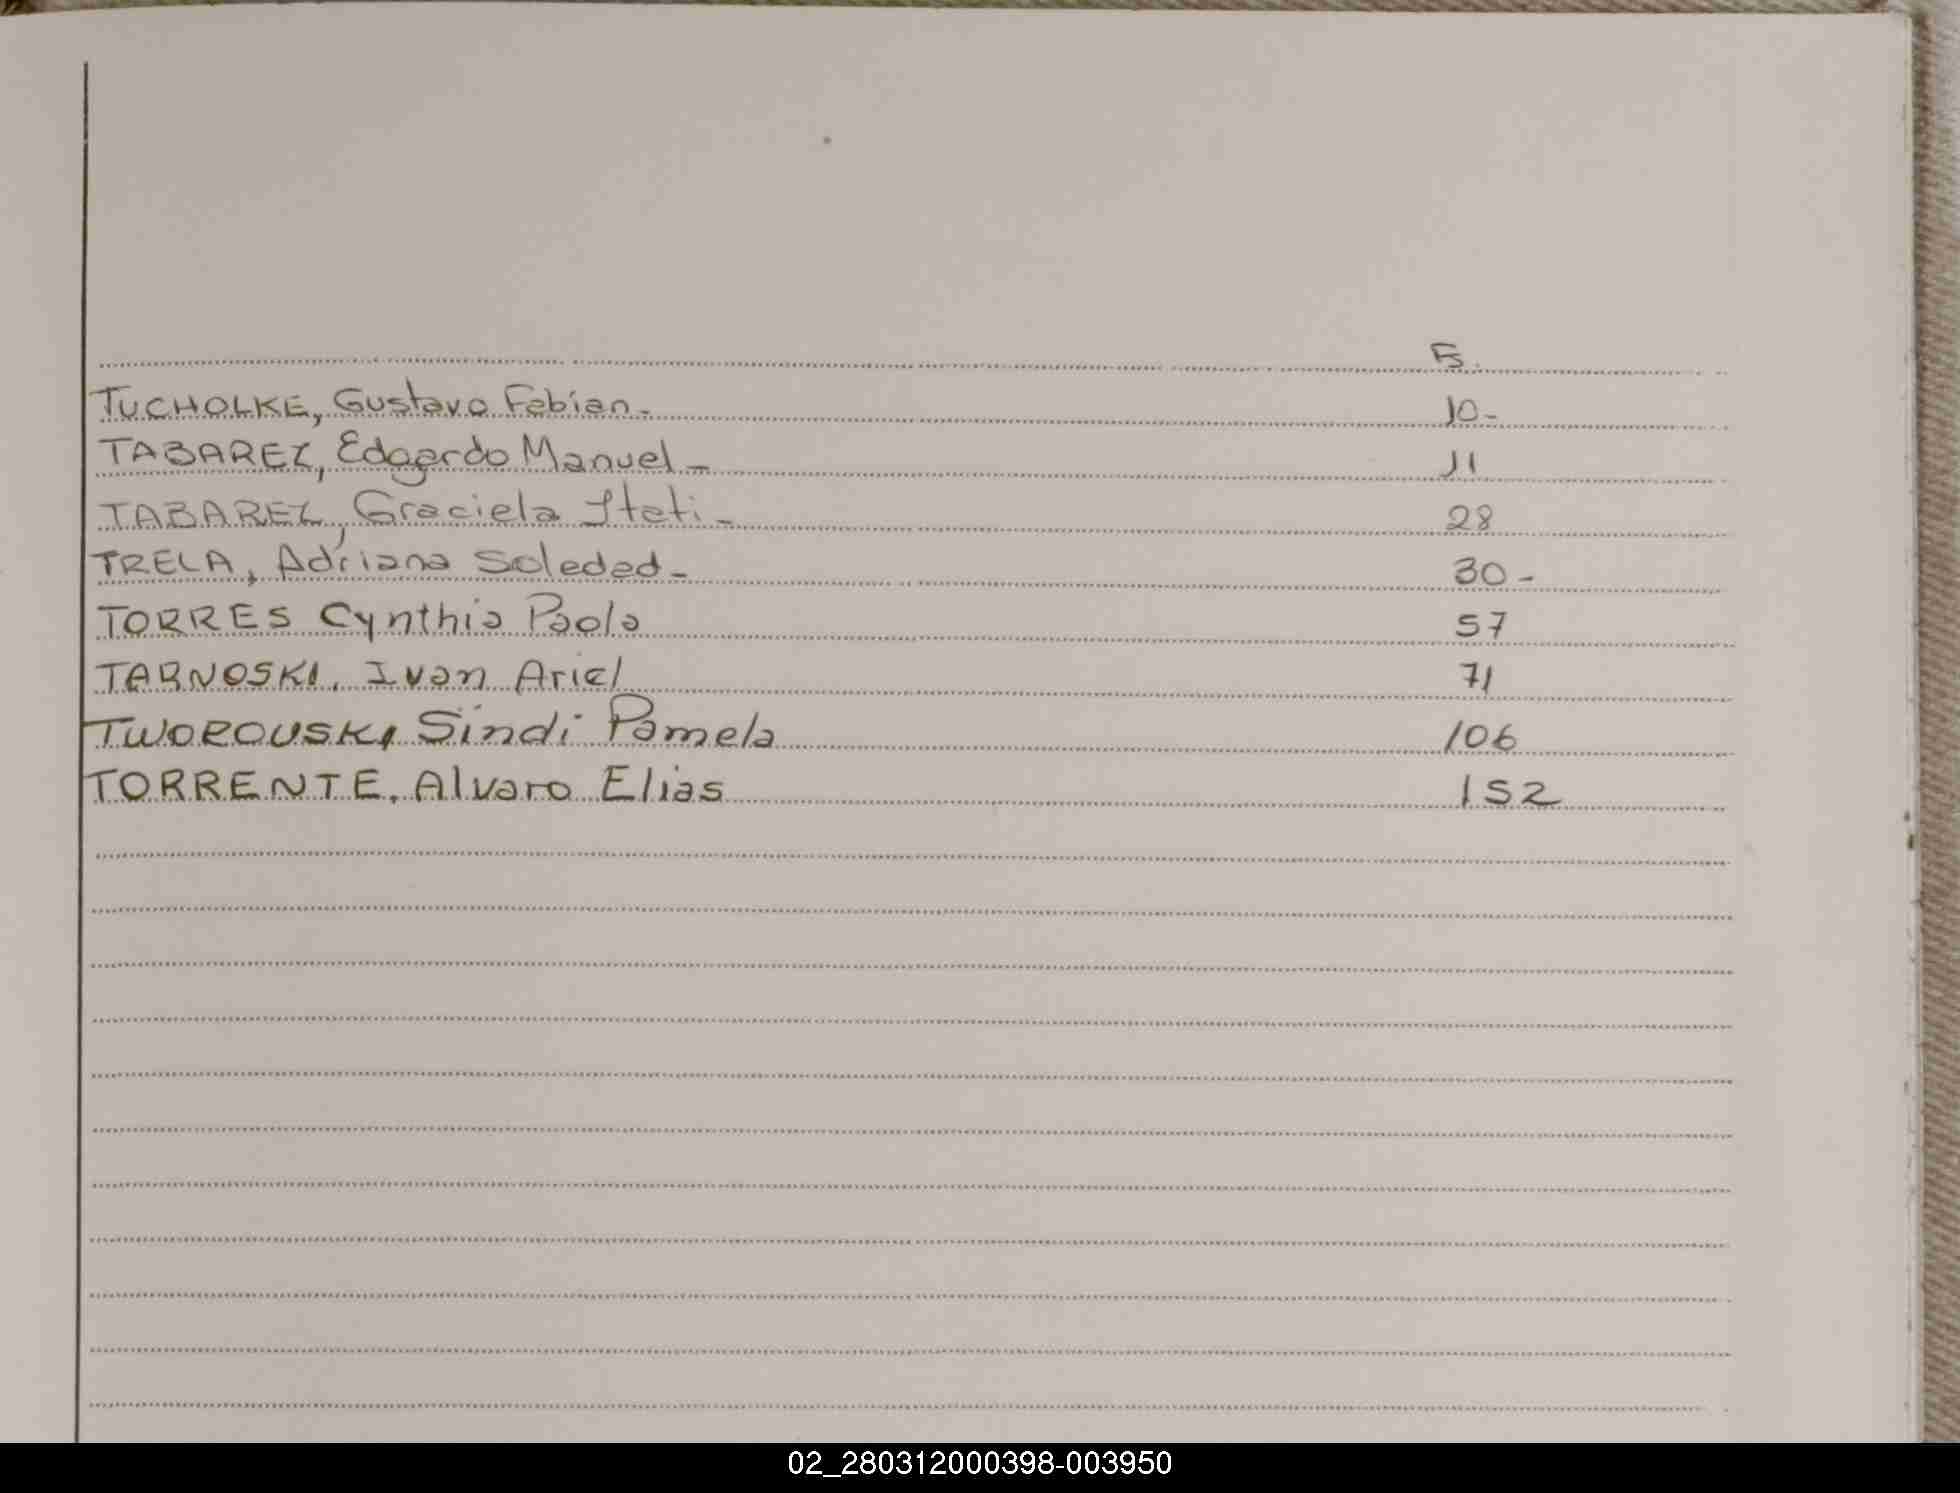 Fs.
TUCHOLKE, Gustavo Fabian.- 10-
TABAREZ, Edgardo Manuel - 11
TABAREZ, Graciela Itati - 28
TRELA, Adriana Soledad - 30-
TORRES Cynthia Paola 57
TARNOSKI, Ivan Ariel 71
TWOROUSKI Sindi Pamela 106
TORRENTE, Alvaro Elias 152
02_280312000398-003950